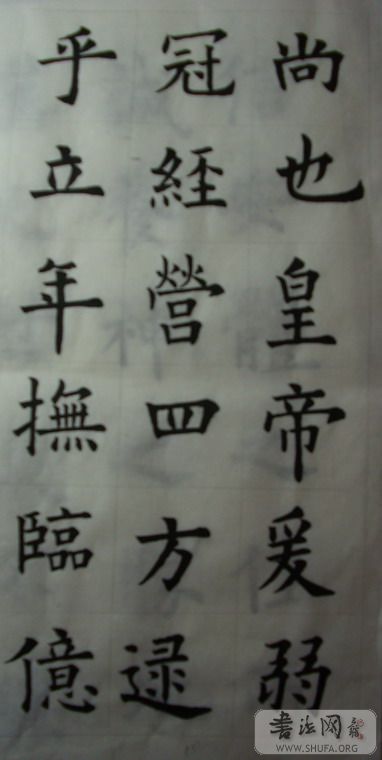 尚也皇帝爰弱
冠經營四方逯
乎立年撫臨億
书法网
WWW.SHUFA.ORG